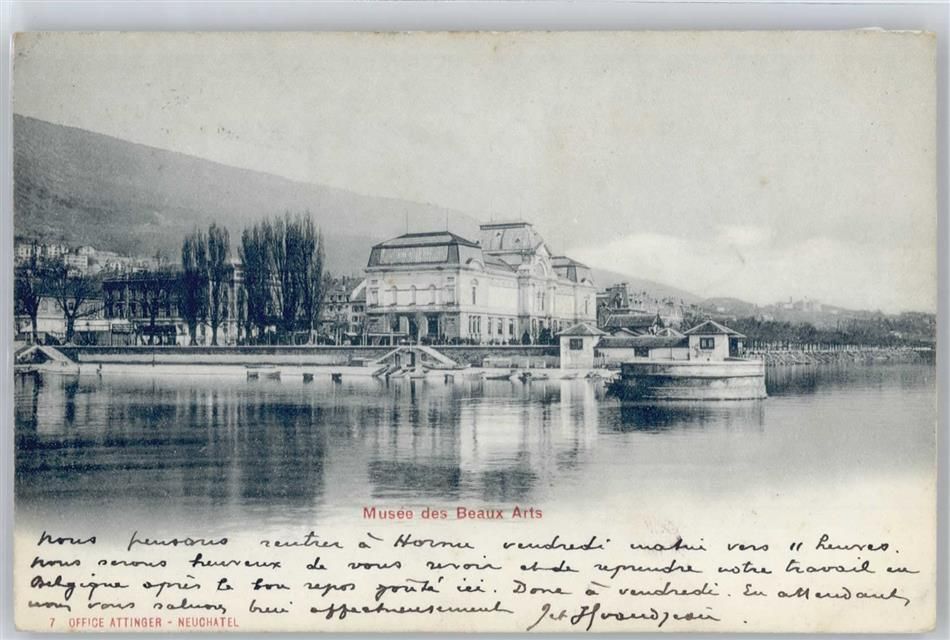 Musée des Beaux Arts
Nous pensons rentrer à Hornu vendredi matin vers 11 heures.
nous serons heureux de vous revoir et de reprendre notre travail en
Belgique après le bon repos goûté ici. Donc à vendredi. En attendant,
nous vous saluons bien affectueusement
7 OFFICE ATTINGER - NEUCHATEL